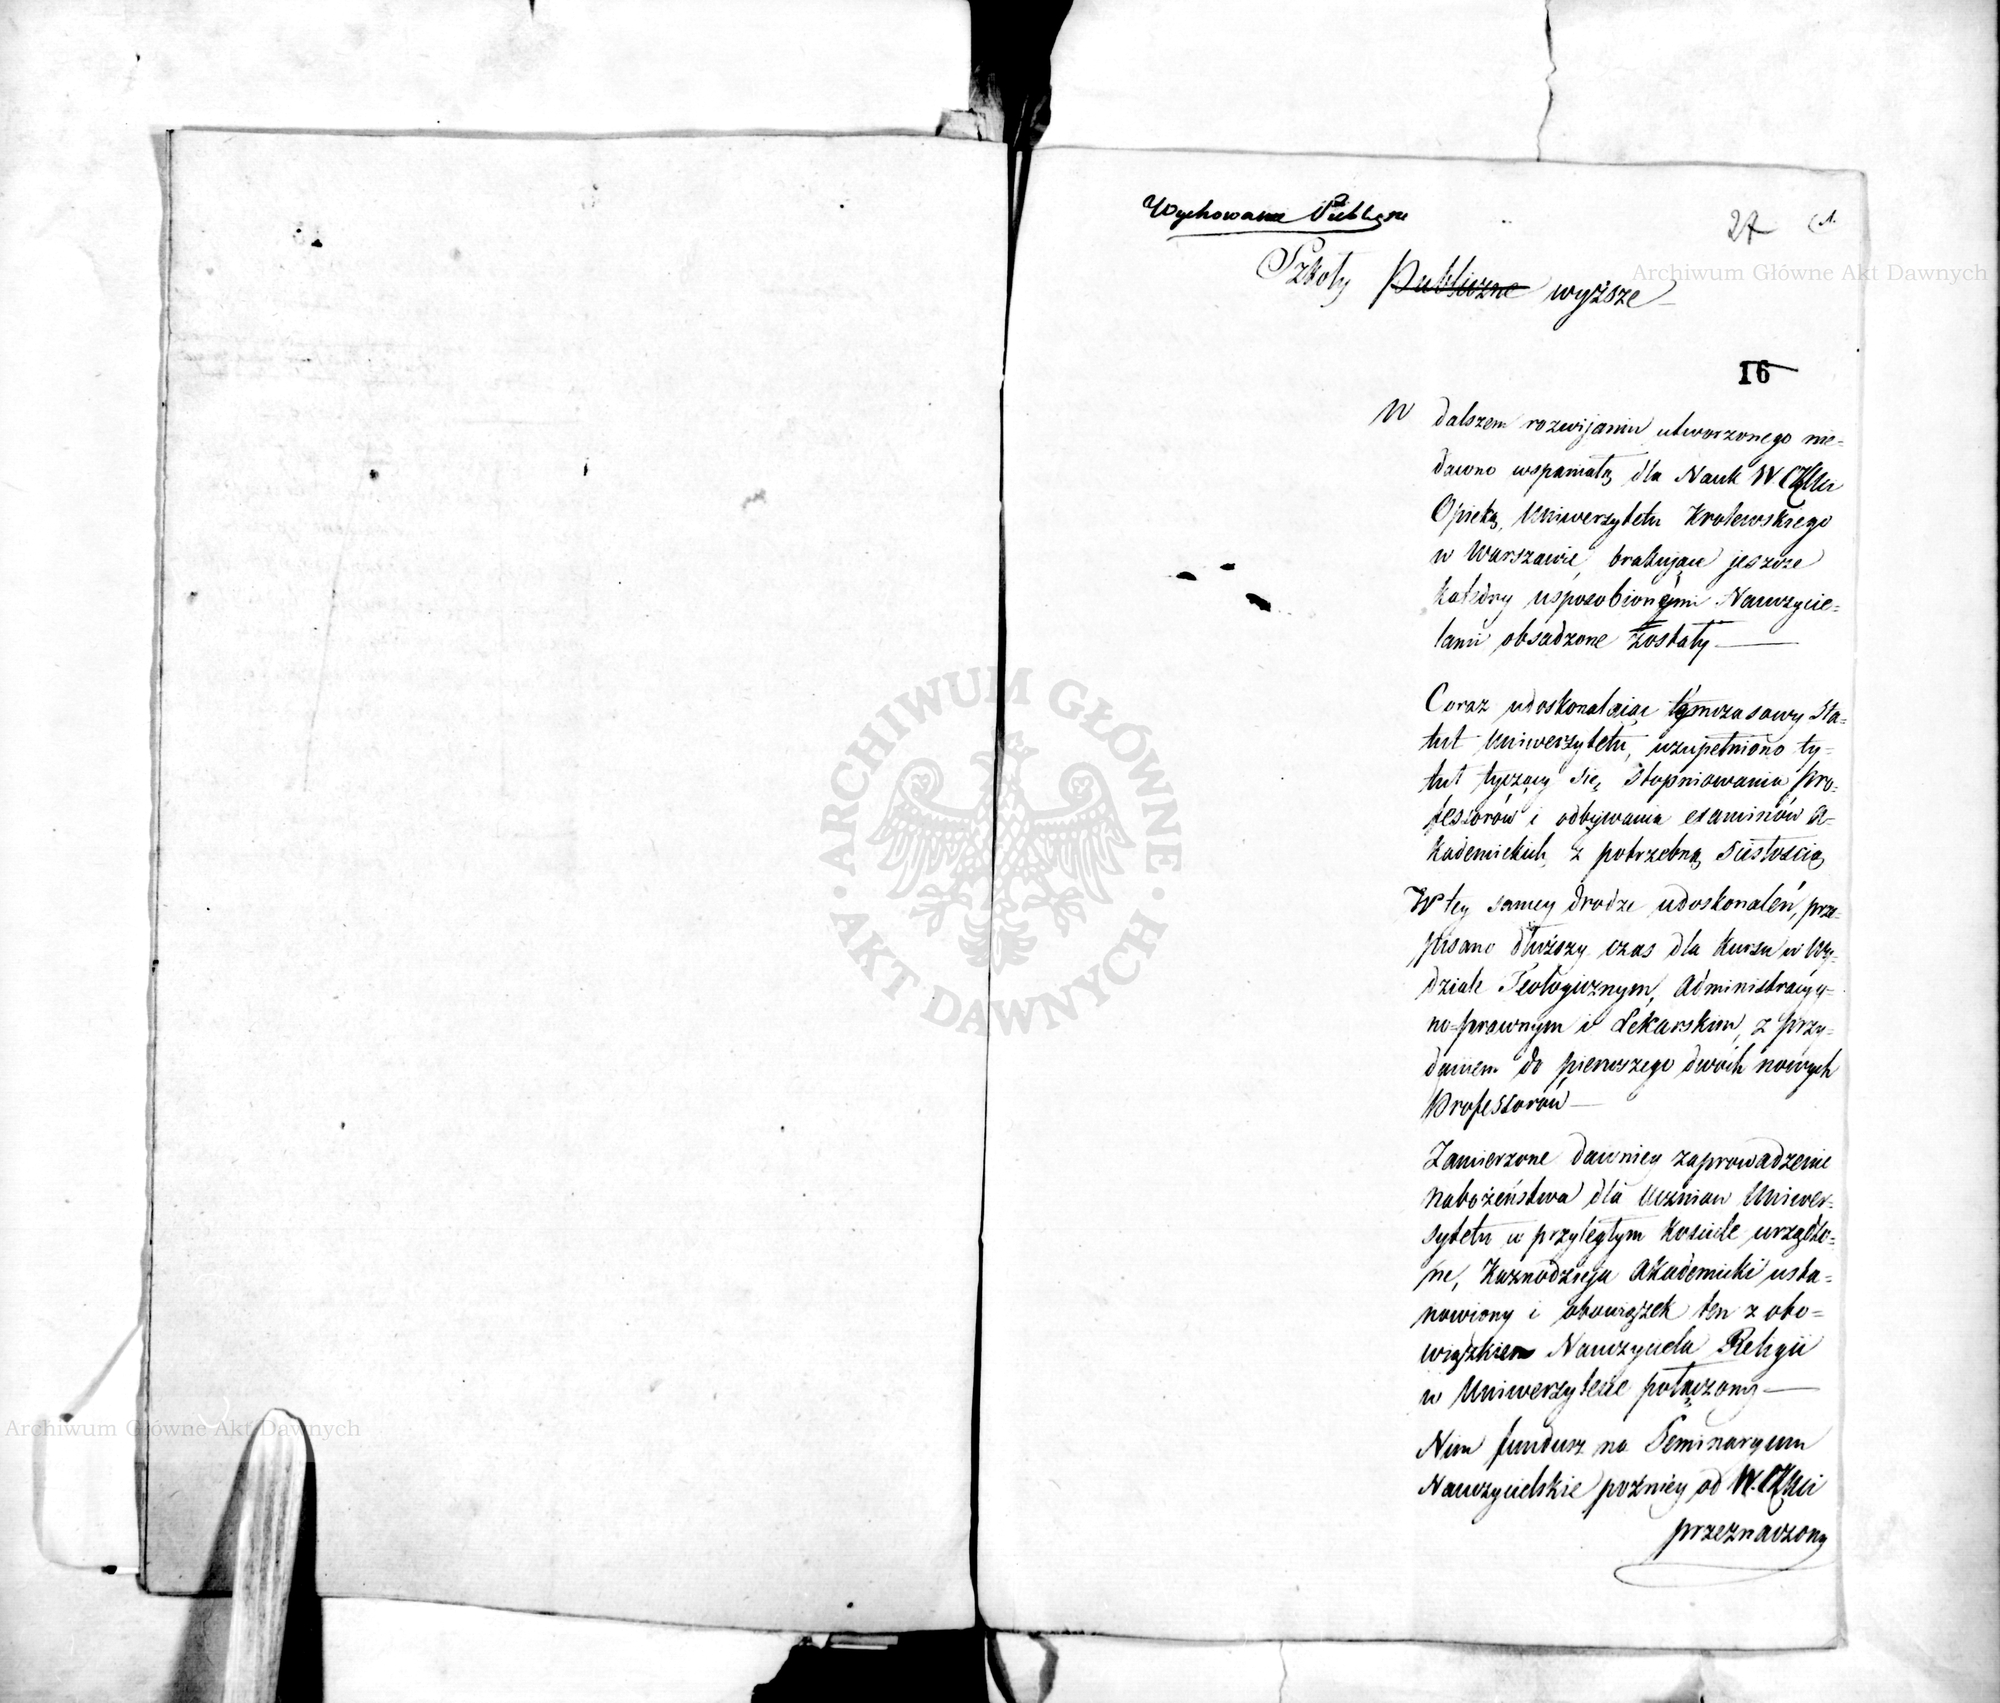 Wychowanie Publiczne
27 (1.
Szkoły Publiczne wyższe
Archiwum Główne Akt Dawnych
16
W dalszem rozwijaniu utworzonego nie=
dawno wspaniałą dla Nauk W CKMci
Opieką, Uniwersytetu Krolewskiego
w Warszawie, brakuiące jeszcze
Katedry usposobionemi Nauczycie=
lami obsadzone zostały —
Coraz udoskonalaiąc tymczasowy Sta=
tut Uniwersytetu, uzupełniono ty=
tuł tyczący się stopniowania Pro=
fessorów i odbywania examinów A=
kademickich, z potrzebną ścisłością
W tey samey drodze udoskonaleń, prze=
pisano dłuższy czas dla kursu w Wy=
dziale Teologicznym, Administracyy=
no=prawnym i Lekarskim, z przy=
daniem do pierwszego dwóch nowych
Professorów —
Zamierzone dawniey zaprowadzenie
nabożeństwa dla Uczniow Uniwer=
sytetu w przyległym Kościele urządzo=
ne, Kaznodzieja Akademicki usta=
nowiony i obowiązek ten z obo=
wiązkiem Nauczyciela Religii
w Uniwersytecie połączony —
Nim fundusz na Seminaryum
Nauczycielskie poźniey od W. CKMci
przeznaczony
ARCHIWUM GŁÓWNE · AKT DAWNYCH ·
Archiwum Główne Akt Dawnych